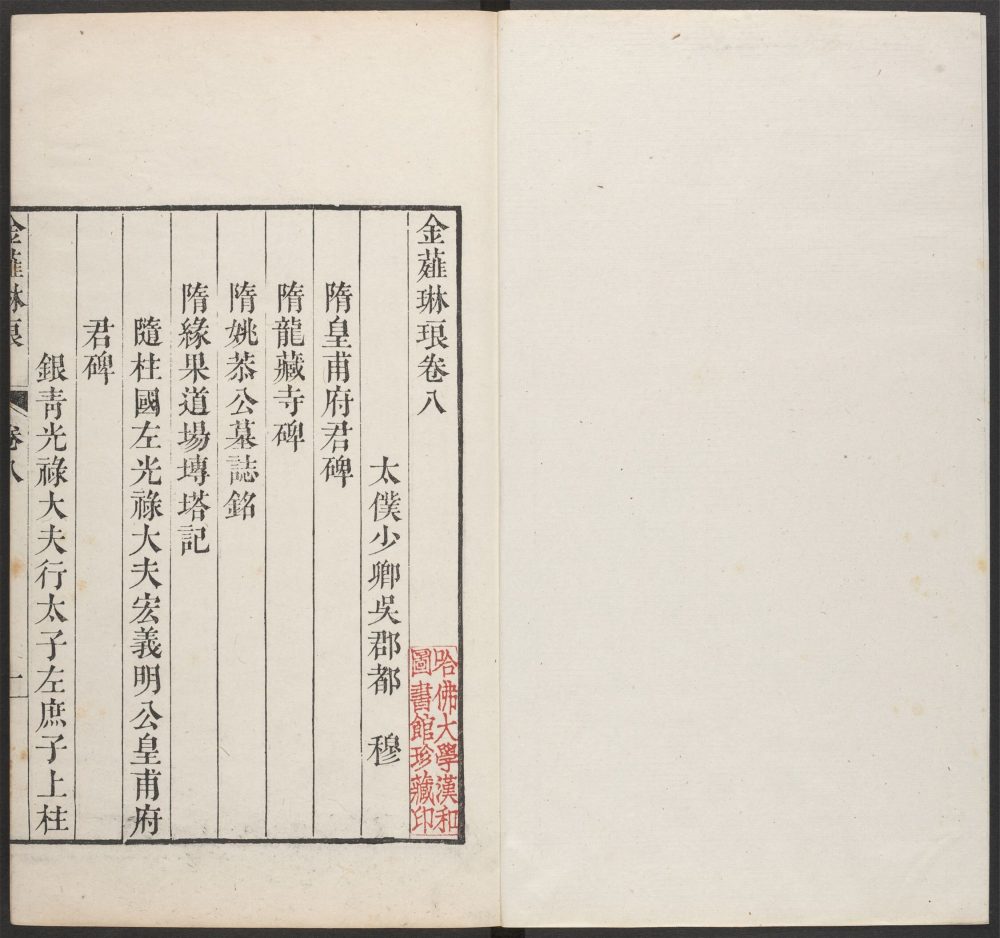 金薤琳琅卷八
太僕少卿吳郡都　穆
隋皇甫府君碑
隋龍藏寺碑
隋姚恭公墓誌銘
隋緣果道場塼塔記
隨柱國左光祿大夫宏義明公皇甫府
君碑
銀青光祿大夫行太子左庶子上柱
金薤琳琅
卷八
一
哈佛大學漢和
圖書館珍藏印